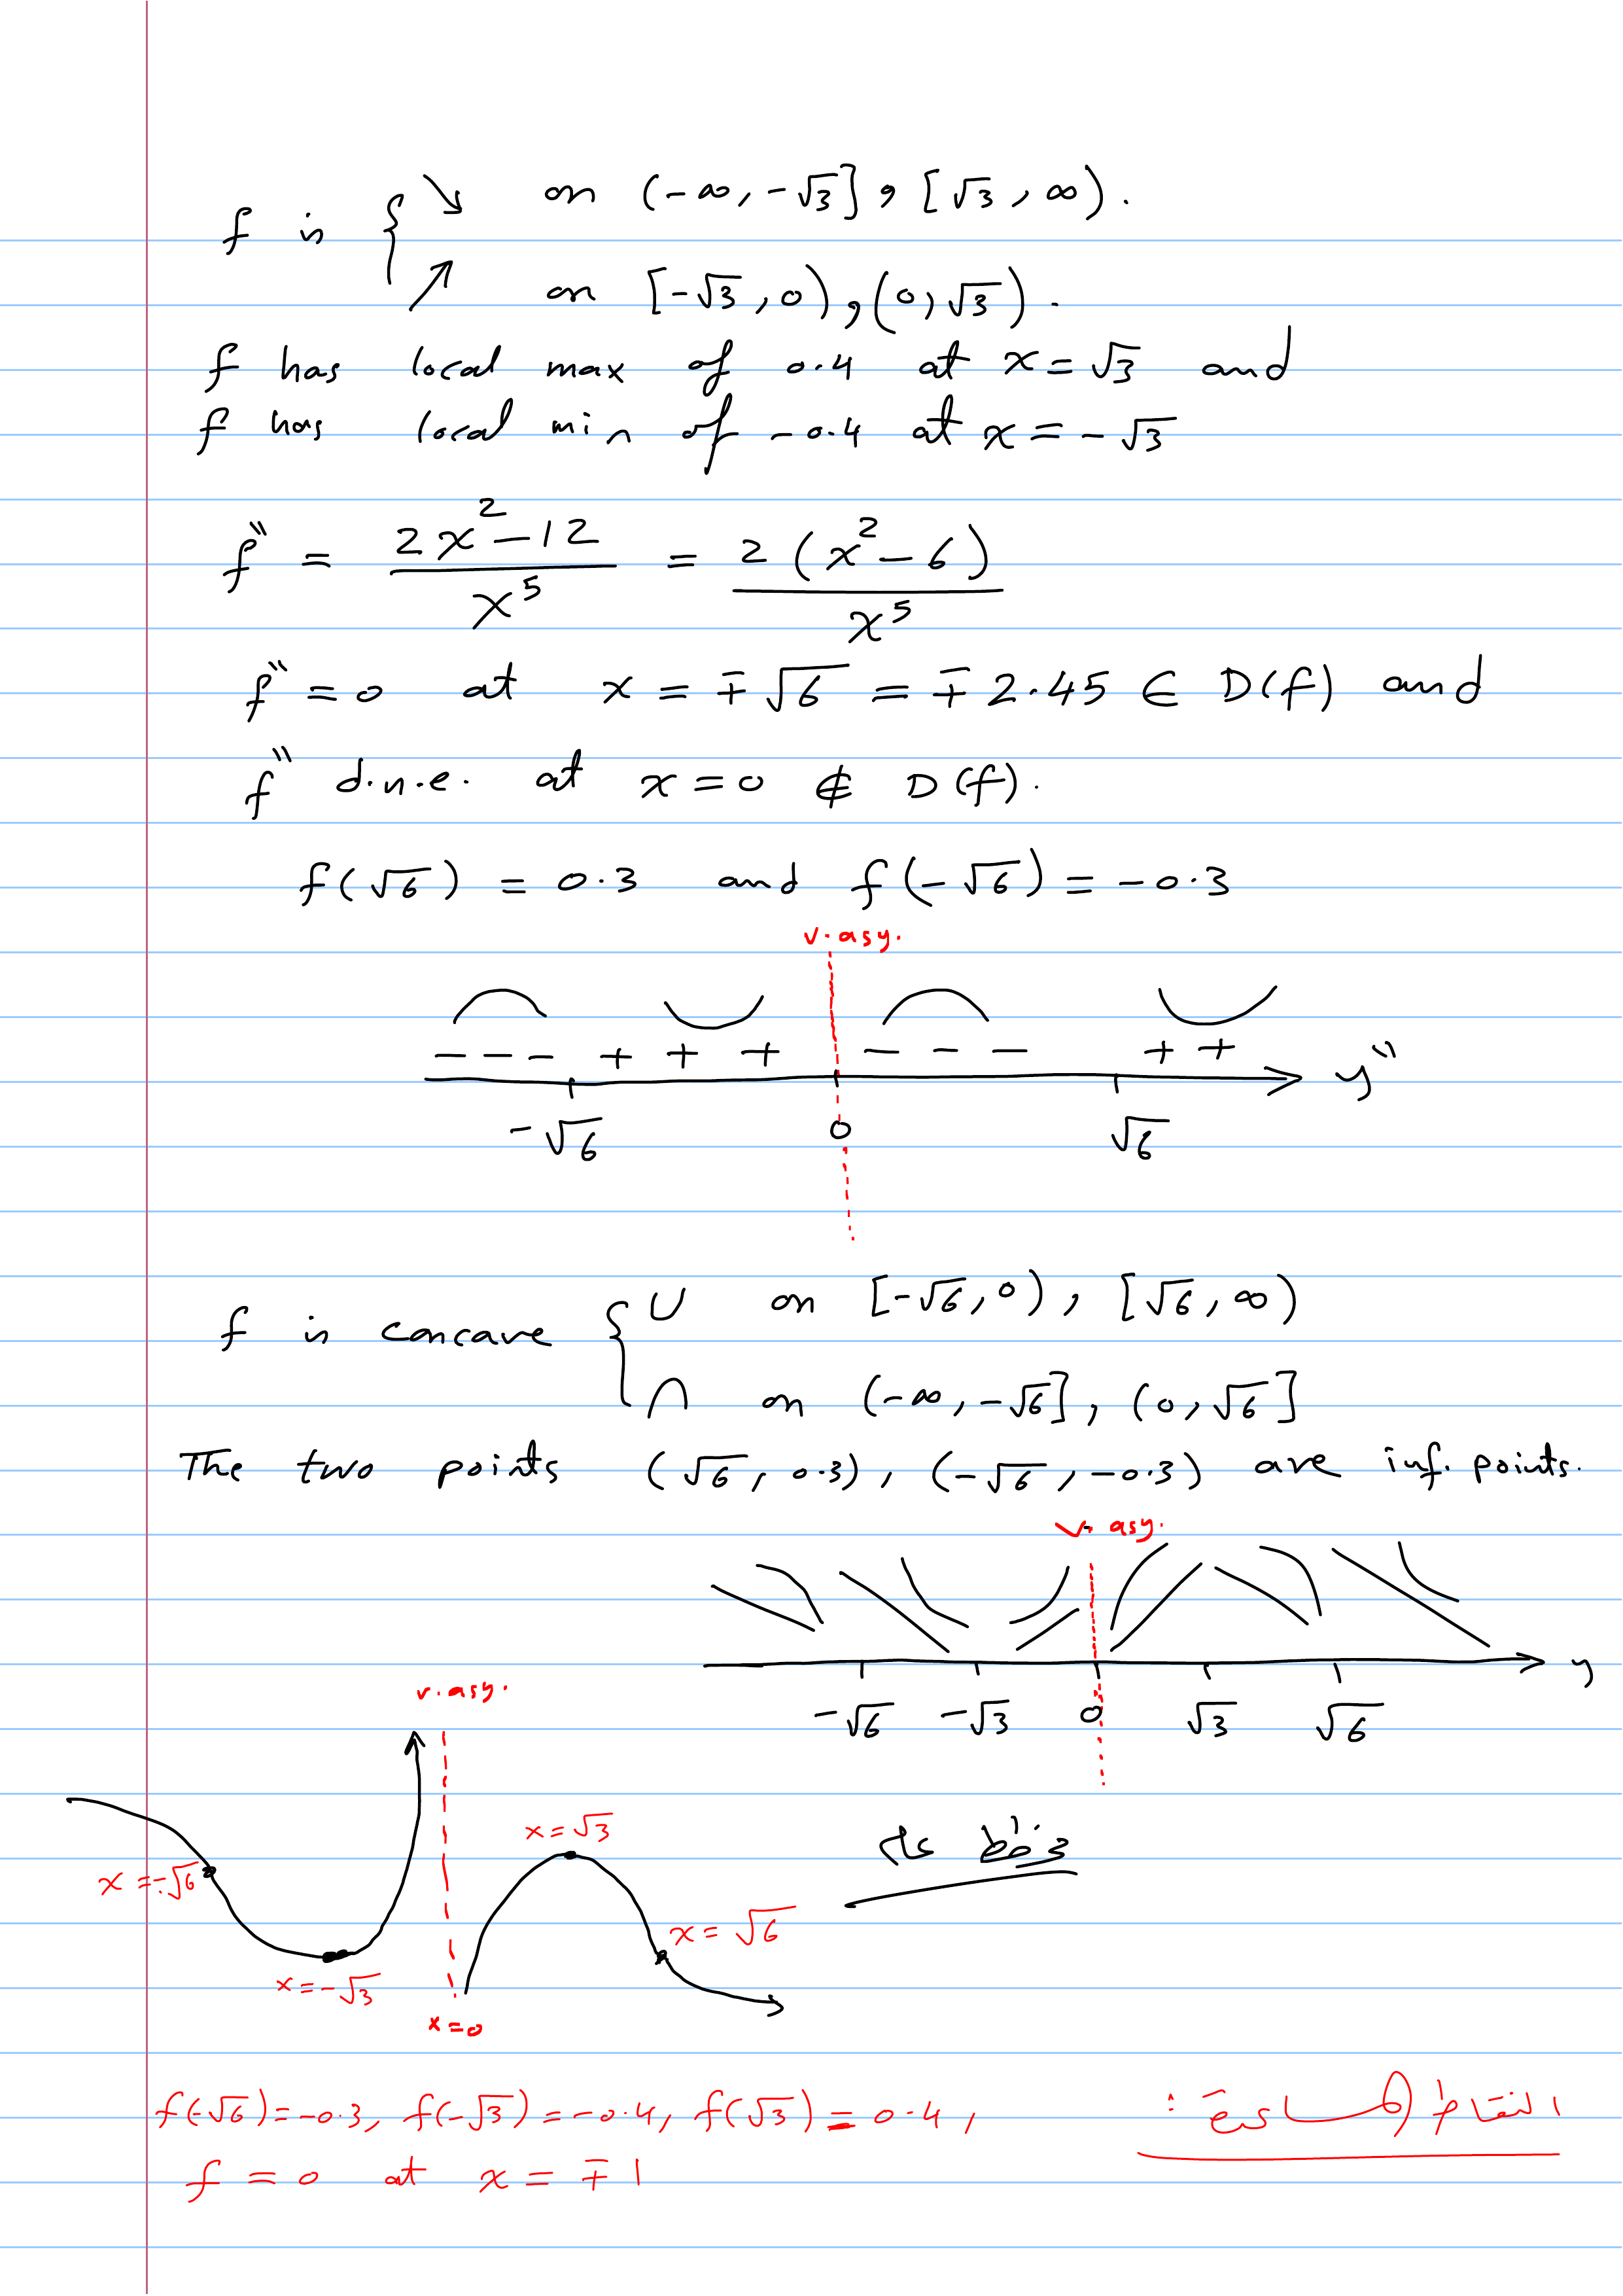 f is { ↘ on (-∞, -√3], [√3, ∞).
↗ on [-√3, 0), (0, √3).
f has local max of 0.4 at x = √3 and
f has local min of -0.4 at x = -√3
f'' = (2x² - 12)/x⁵ = 2(x² - 6)/x⁵
f'' = 0 at x = ∓√6 = ∓2.45 ∈ D(f) and
f'' d.n.e. at x = 0 ∉ D(f).
f(√6) = 0.3 and f(-√6) = -0.3
v. asy.
- - - + + + - - - + + y''
-√6 0 √6
f is concave { ∪ on [-√6, 0), [√6, ∞)
∩ on (-∞, -√6], (0, √6]
The two points (√6, 0.3), (-√6, -0.3) are inf. points.
v. asy.
y
-√6 -√3 0 √3 √6
v. asy.
x = √3
مخطط عام
x = -√6
x = √6
x = -√3
x = 0
النقاط المساعدة :
f(-√6) = -0.3, f(-√3) = -0.4, f(√3) = 0.4,
f = 0 at x = ∓1